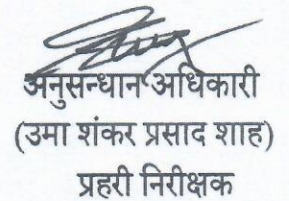 अनुसन्धान अधिकारी
(उमा शंकर प्रसाद शाह)
प्रहरी निरीक्षक